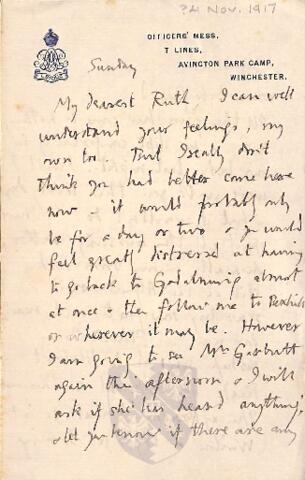 ? 4 Nov. 1917
OFFICERS' MESS,
T LINES,
AVINGTON PARK CAMP,
WINCHESTER.
Sunday
My dearest Ruth, I can well
understand your feelings, my
own too. But I really don't
think you had better come here
now - it would probably only
be for a day or two & you would
feel greatly distressed at having
to go back to Godalming almost
at once & then follow me to Bexhill
or wherever it may be. However
I am going to see Mrs Garbutt
again this afternoon & I will
ask if she has heard anything,
& let you know if there are any